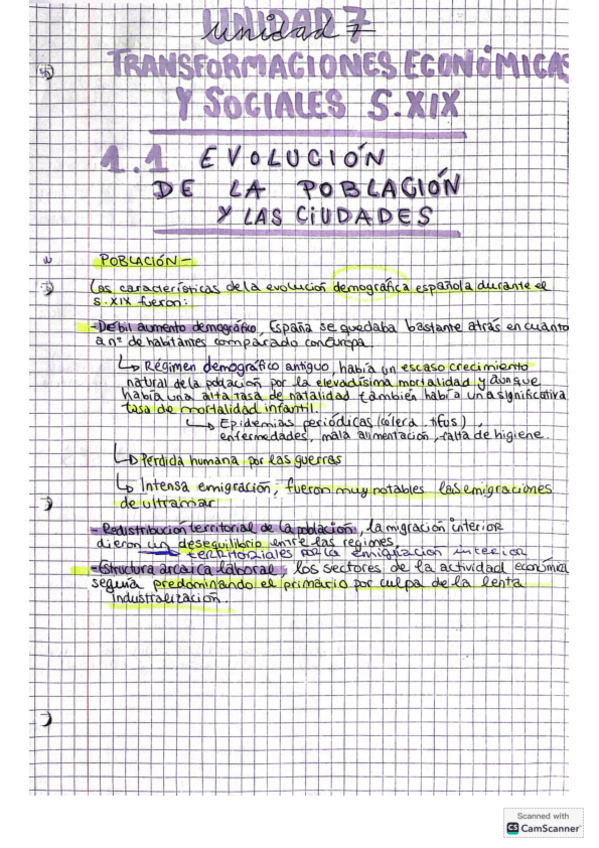 UNIDAD 7
Unidad 7
TRANSFORMACIONES ECONÓMICAS
Y SOCIALES S.XIX
1.1 EVOLUCIÓN
DE LA POBLACIÓN
Y LAS CIUDADES
POBLACIÓN-
Las características de la evolución demografica española durante el
S.XIX fueron:
-Debil aumento demográfico, España se quedaba bastante atrás en cuanto
a nº de habitantes comparado con Europa.
↳ Régimen demográfico antiguo, había un escaso crecimiento
natural de la población por la elevadísima mortalidad y aunque
había una alta tasa de natalidad también había una significativa
tasa de mortalidad infantil.
↳ Epidemias periódicas (cólera, tifus),
enfermedades, mala alimentación, falta de higiene.
↳ Pérdida humana por las guerras
↳ Intensa emigración, fueron muy notables las emigraciones
de ultramar
- Redistribución territorial de la población, la migración interior
dieron un desequilibrio entre las regiones.
→ territoriales por la emigración interior
-Estructura arcaica laboral, los sectores de la actividad económica
seguía predominando el primario por culpa de la lenta
industrialización.
Scanned with
CS CamScanner